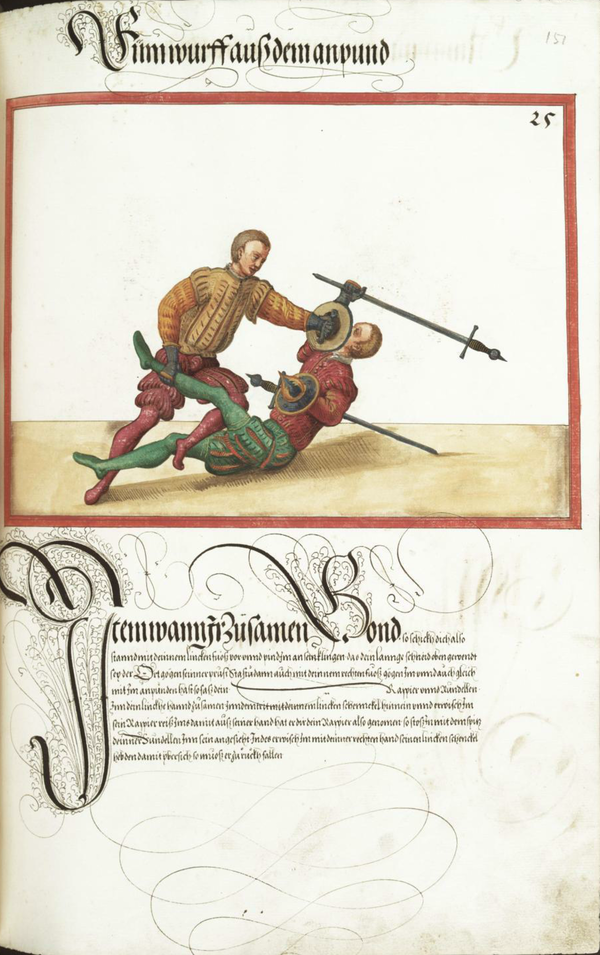 Ein wurff auß dem anpund
151
25
Item wann Ir zůsamen Bond so schickh dich also
stannd mit deinem lincken fůoß vor vnnd pindt Im an sein klingen das dein lannge schneid oben gewendt
sey der Ort gogen seiner
dann auch mit deinem rechten fůoß gogen Im vnnd auch gleich
mit Im anpunden hast so fass dein Rappier vnnd Rundellen
Inn dein lincke hannd zusamen Inndem trit mit deinnem lincken schennckel hinein vnnd erwisch Im
sein Rappier reiß Ims damit auß seiner hand hast er dir dein Rapier also genomen so stoß Im mit dem spitz
deinner Rundellen Inn sein angesicht Indes erwisch Im mit deinner rechten hand seinen lincken schenckel
heb den damit ybersich so můoß er zůruckh fallen